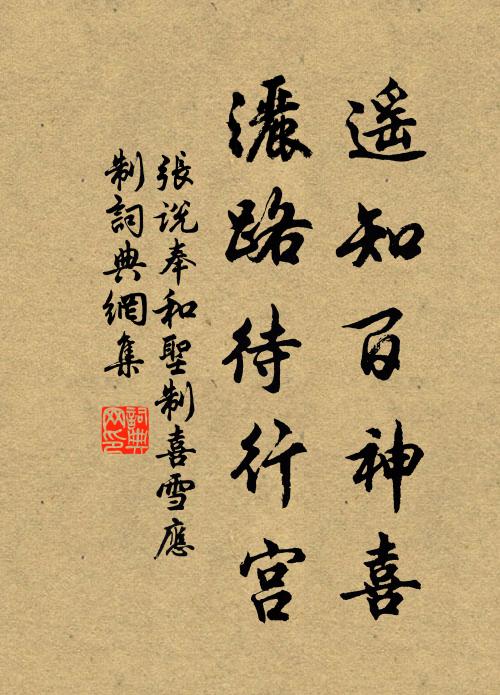 遥知百神喜
灑路待行宫
張説奉和聖制喜雪應
制詞典網集
詞典網印